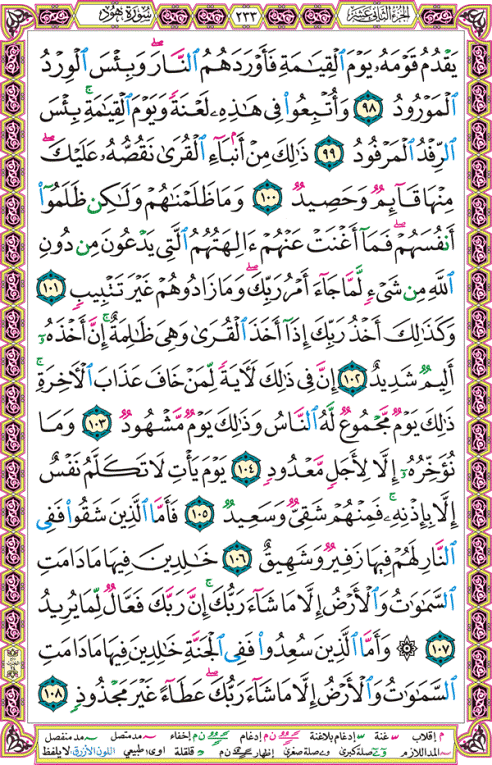 الجزء الثاني عشر ٢٣٣ سورة هود
يَقۡدُمُ قَوۡمَهُۥ يَوۡمَ ٱلۡقِيَٰمَةِ فَأَوۡرَدَهُمُ ٱلنَّارَۖ وَبِئۡسَ ٱلۡوِرۡدُ
ٱلۡمَوۡرُودُ ٩٨ وَأُتۡبِعُواْ فِي هَٰذِهِۦ لَعۡنَةٗ وَيَوۡمَ ٱلۡقِيَٰمَةِۚ بِئۡسَ
ٱلرِّفۡدُ ٱلۡمَرۡفُودُ ٩٩ ذَٰلِكَ مِنۡ أَنۢبَآءِ ٱلۡقُرَىٰ نَقُصُّهُۥ عَلَيۡكَۖ
مِنۡهَا قَآئِمٞ وَحَصِيدٞ ١٠٠ وَمَا ظَلَمۡنَٰهُمۡ وَلَٰكِن ظَلَمُوٓاْ
أَنفُسَهُمۡۖ فَمَآ أَغۡنَتۡ عَنۡهُمۡ ءَالِهَتُهُمُ ٱلَّتِي يَدۡعُونَ مِن دُونِ
ٱللَّهِ مِن شَيۡءٖ لَّمَّا جَآءَ أَمۡرُ رَبِّكَۖ وَمَا زَادُوهُمۡ غَيۡرَ تَتۡبِيبٖ ١٠١
وَكَذَٰلِكَ أَخۡذُ رَبِّكَ إِذَآ أَخَذَ ٱلۡقُرَىٰ وَهِيَ ظَٰلِمَةٌۚ إِنَّ أَخۡذَهُۥٓ
أَلِيمٞ شَدِيدٌ ١٠٢ إِنَّ فِي ذَٰلِكَ لَأٓيَةٗ لِّمَنۡ خَافَ عَذَابَ ٱلۡأٓخِرَةِۚ
ذَٰلِكَ يَوۡمٞ مَّجۡمُوعٞ لَّهُ ٱلنَّاسُ وَذَٰلِكَ يَوۡمٞ مَّشۡهُودٞ ١٠٣ وَمَا
نُؤَخِّرُهُۥٓ إِلَّا لِأَجَلٖ مَّعۡدُودٖ ١٠٤ يَوۡمَ يَأۡتِ لَا تَكَلَّمُ نَفۡسٌ
إِلَّا بِإِذۡنِهِۦۚ فَمِنۡهُمۡ شَقِيّٞ وَسَعِيدٞ ١٠٥ فَأَمَّا ٱلَّذِينَ شَقُواْ فَفِي
ٱلنَّارِ لَهُمۡ فِيهَا زَفِيرٞ وَشَهِيقٌ ١٠٦ خَٰلِدِينَ فِيهَا مَا دَامَتِ
ٱلسَّمَٰوَٰتُ وَٱلۡأَرۡضُ إِلَّا مَا شَآءَ رَبُّكَۚ إِنَّ رَبَّكَ فَعَّالٞ لِّمَا يُرِيدُ
١٠٧ ۞ وَأَمَّا ٱلَّذِينَ سُعِدُواْ فَفِي ٱلۡجَنَّةِ خَٰلِدِينَ فِيهَا مَا دَامَتِ
ٱلسَّمَٰوَٰتُ وَٱلۡأَرۡضُ إِلَّا مَا شَآءَ رَبُّكَۖ عَطَآءً غَيۡرَ مَجۡذُوذٖ ١٠٨
م إقلاب س غنة س إدغام بلاغنة ن م إدغام ن م إخفاء مد متصل مد منفصل
المد اللازم صلة كبرى صلة صغرى إظهار ن م قلقلة اوى طبيعي اللون الأزرق لا يلفظ